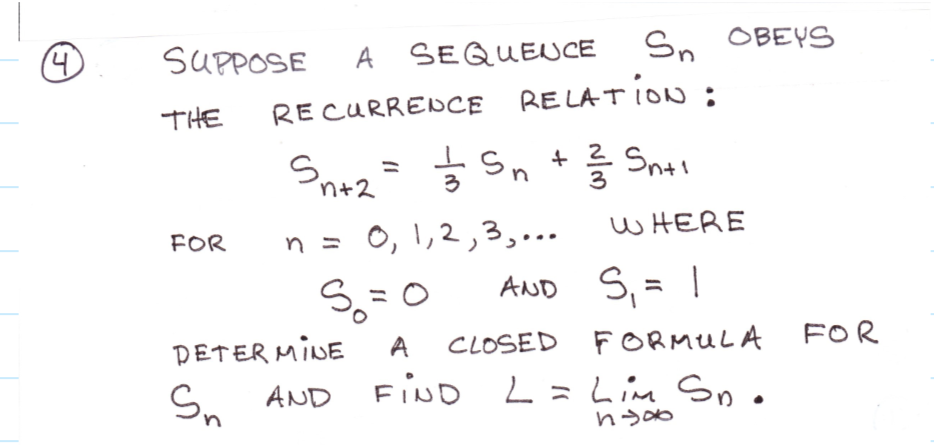 ④ SUPPOSE A SEQUENCE Sₙ OBEYS
THE RECURRENCE RELATION :
Sₙ₊₂ = 1/3 Sₙ + 2/3 Sₙ₊₁
FOR n = 0, 1, 2, 3, ... WHERE
S₀ = 0 AND S₁ = 1
DETERMINE A CLOSED FORMULA FOR
Sₙ AND FIND L = Lim n→∞ Sₙ .